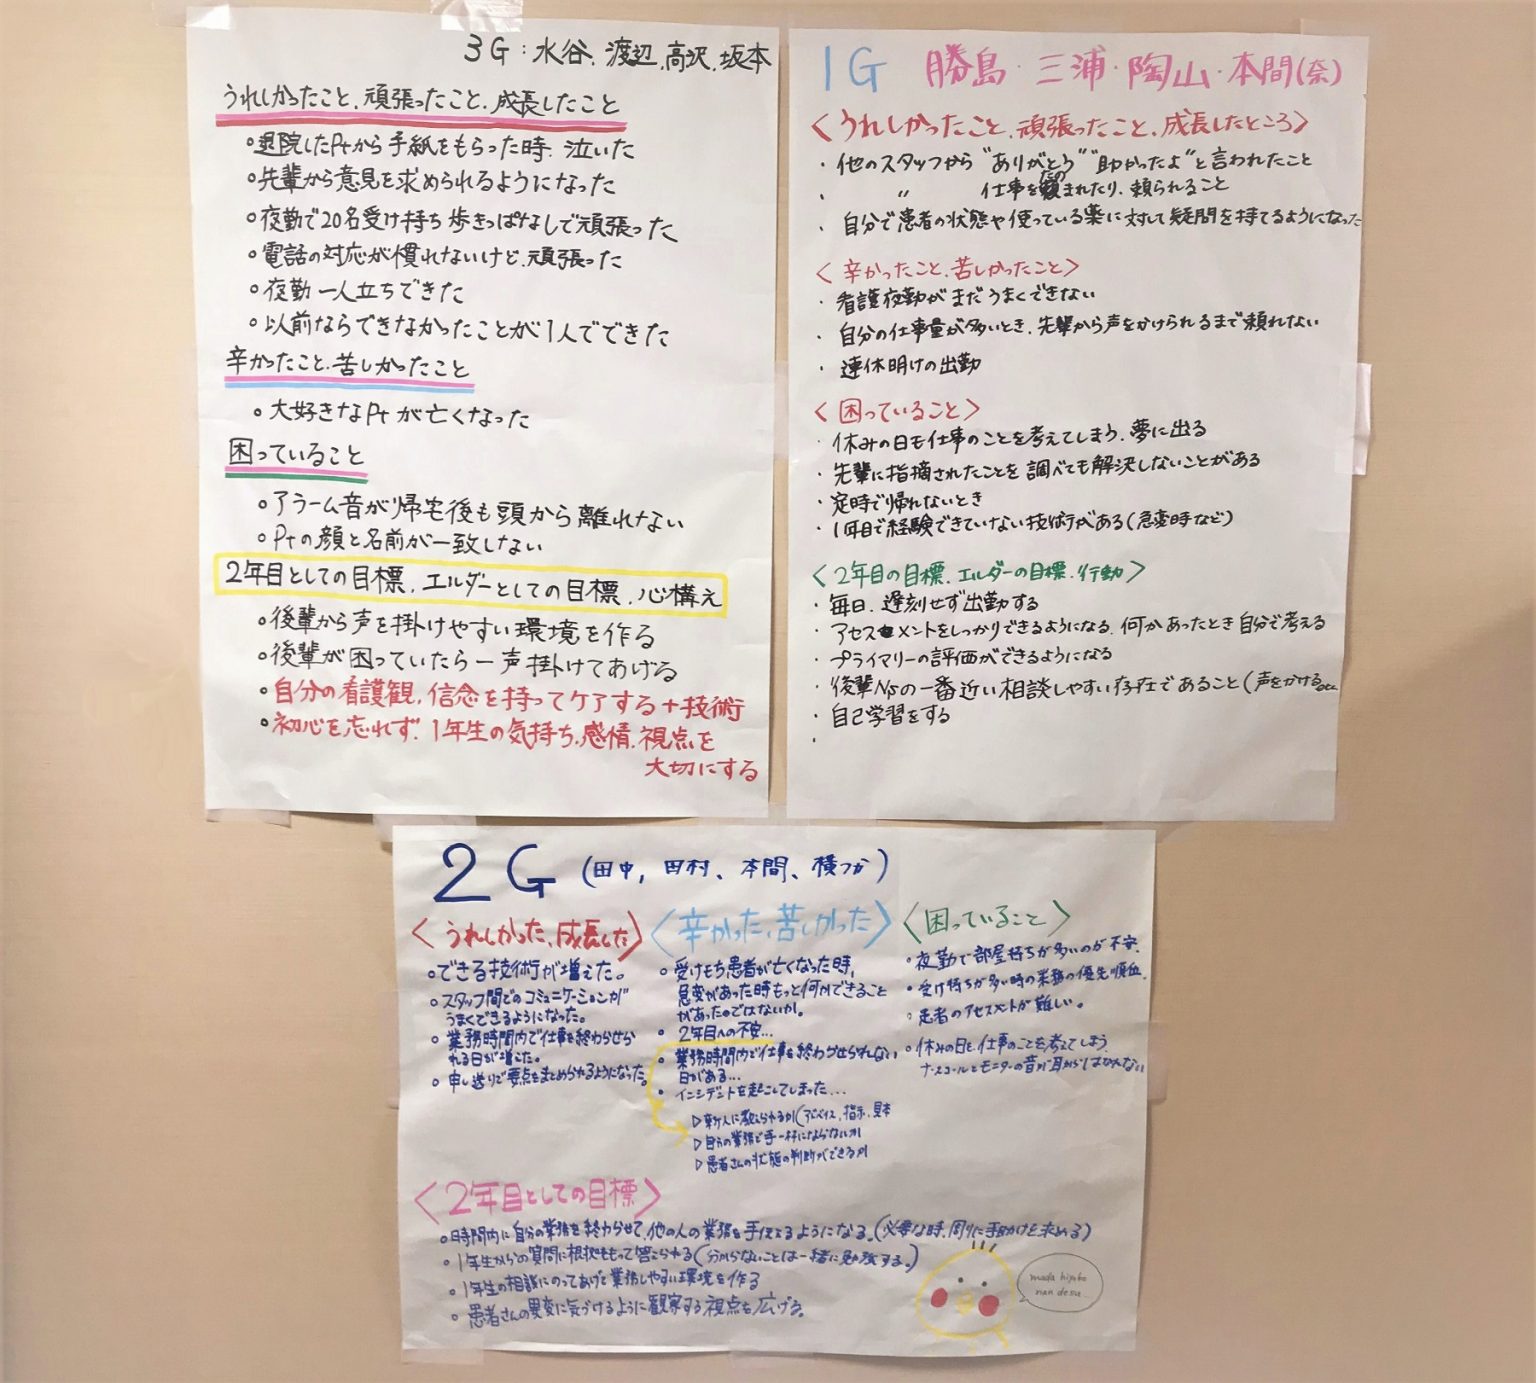 3G：水谷、渡辺、高沢、坂本
うれしかったこと、頑張ったこと、成長したこと
○退院したPtから手紙をもらった時、泣いた
○先輩から意見を求められるようになった
○夜勤で20名受け持ち歩きっぱなしで頑張った
○電話の対応が慣れないけど、頑張った
○夜勤一人立ちできた
○以前ならできなかったことが1人でできた
辛かったこと、苦しかったこと
○大好きなPtが亡くなった
困っていること
○アラーム音が帰宅後も頭から離れない
○Ptの顔と名前が一致しない
2年目としての目標、エルダーとしての目標、心構え
○後輩から声を掛けやすい環境を作る
○後輩が困っていたら一声掛けてあげる
○自分の看護観、信念を持ってケアする＋技術
○初心を忘れず、1年生の気持ち、感情、視点を
大切にする
1G 勝島・三浦・陶山・本間(奈)
〈うれしかったこと、頑張ったこと、成長したところ〉
・他のスタッフから"ありがとう" "助かったよ"と言われたこと
・〃 仕事を頼まれたり、頼られること
・自分で患者の状態や使っている薬に対して疑問を持てるようになった
〈辛かったこと、苦しかったこと〉
・看護夜勤がまだうまくできない
・自分の仕事量が多いとき、先輩から声をかけられるまで頼れない
・連休明けの出勤
〈困っていること〉
・休みの日も仕事のことを考えてしまう、夢に出る
・先輩に指摘されたことを調べても解決しないことがある
・定時で帰れないとき
・1年目で経験できていない技術がある(急変時など)
〈2年目の目標、エルダーの目標、行動〉
・毎日、遅刻せず出勤する
・アセスメントをしっかりできるようになる、何かあったとき自分で考える
・プライマリーの評価ができるようになる
・後輩Nsの一番近い相談しやすい存在であること(声をかけるetc
・自己学習をする
・
2G (田中、田村、本間、横つか)
〈うれしかった、成長した〉
○できる技術が増えた。
○スタッフ間でのコミュニケーションが
うまくできるようになった。
○業務時間内で仕事を終わらせら
れる日が増えた。
○申し送りで要点をまとめられるようになった。
〈辛かった、苦しかった〉
○受けもち患者が亡くなった時、
急変があった時もっと何かできること
があったのではないか。
○2年目への不安…
○業務時間内で仕事を終わらせられない
日がある…
・インシデントを起こしてしまった…
▷新人に教えられるか(アドバイス、指示、見本
▷自分の業務で手一杯にならないか
▷患者さんの状態の判断ができるか
〈困っていること〉
○夜勤で部屋持ちが多いのが不安、
○受け持ちが多い時の業務の優先順位、
○患者のアセスメントが難しい。
○休みの日も仕事のことを考えてしまう
ナースコールとモニターの音が耳からはなれない
〈2年目としての目標〉
○時間内に自分の業務を終わらせて、他の人の業務を手伝えるようになる。(必要な時、周りに手助けを求める)
・1年生からの質問に根拠をもって答えられる(分からないことは一緒に勉強する。)
・1年生の相談にのってあげて業務しやすい環境を作る
・患者さんの異変に気づけるように観察する視点を広げる。
mada hiyoko
nan desu...